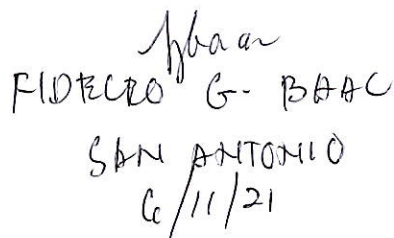 FIDECRO G. BAAC
SAN ANTONIO
6/11/21